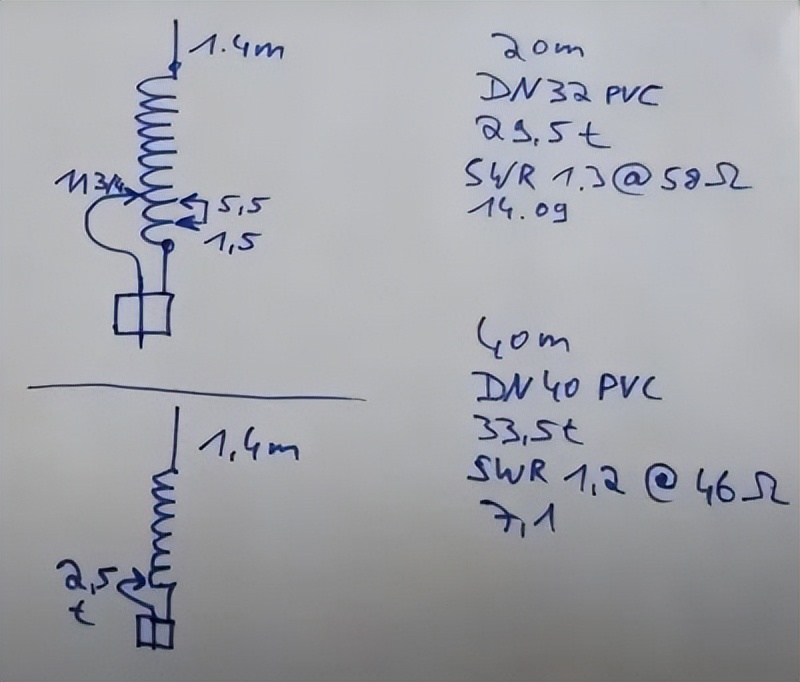 1.4m
11 3/4
5,5
1,5
20m
DN 32 PVC
29,5t
SWR 1.3 @ 58 Ω
14.09
1,4m
2,5
t
40m
DN 40 PVC
33,5t
SWR 1,2 @ 46 Ω
7,1